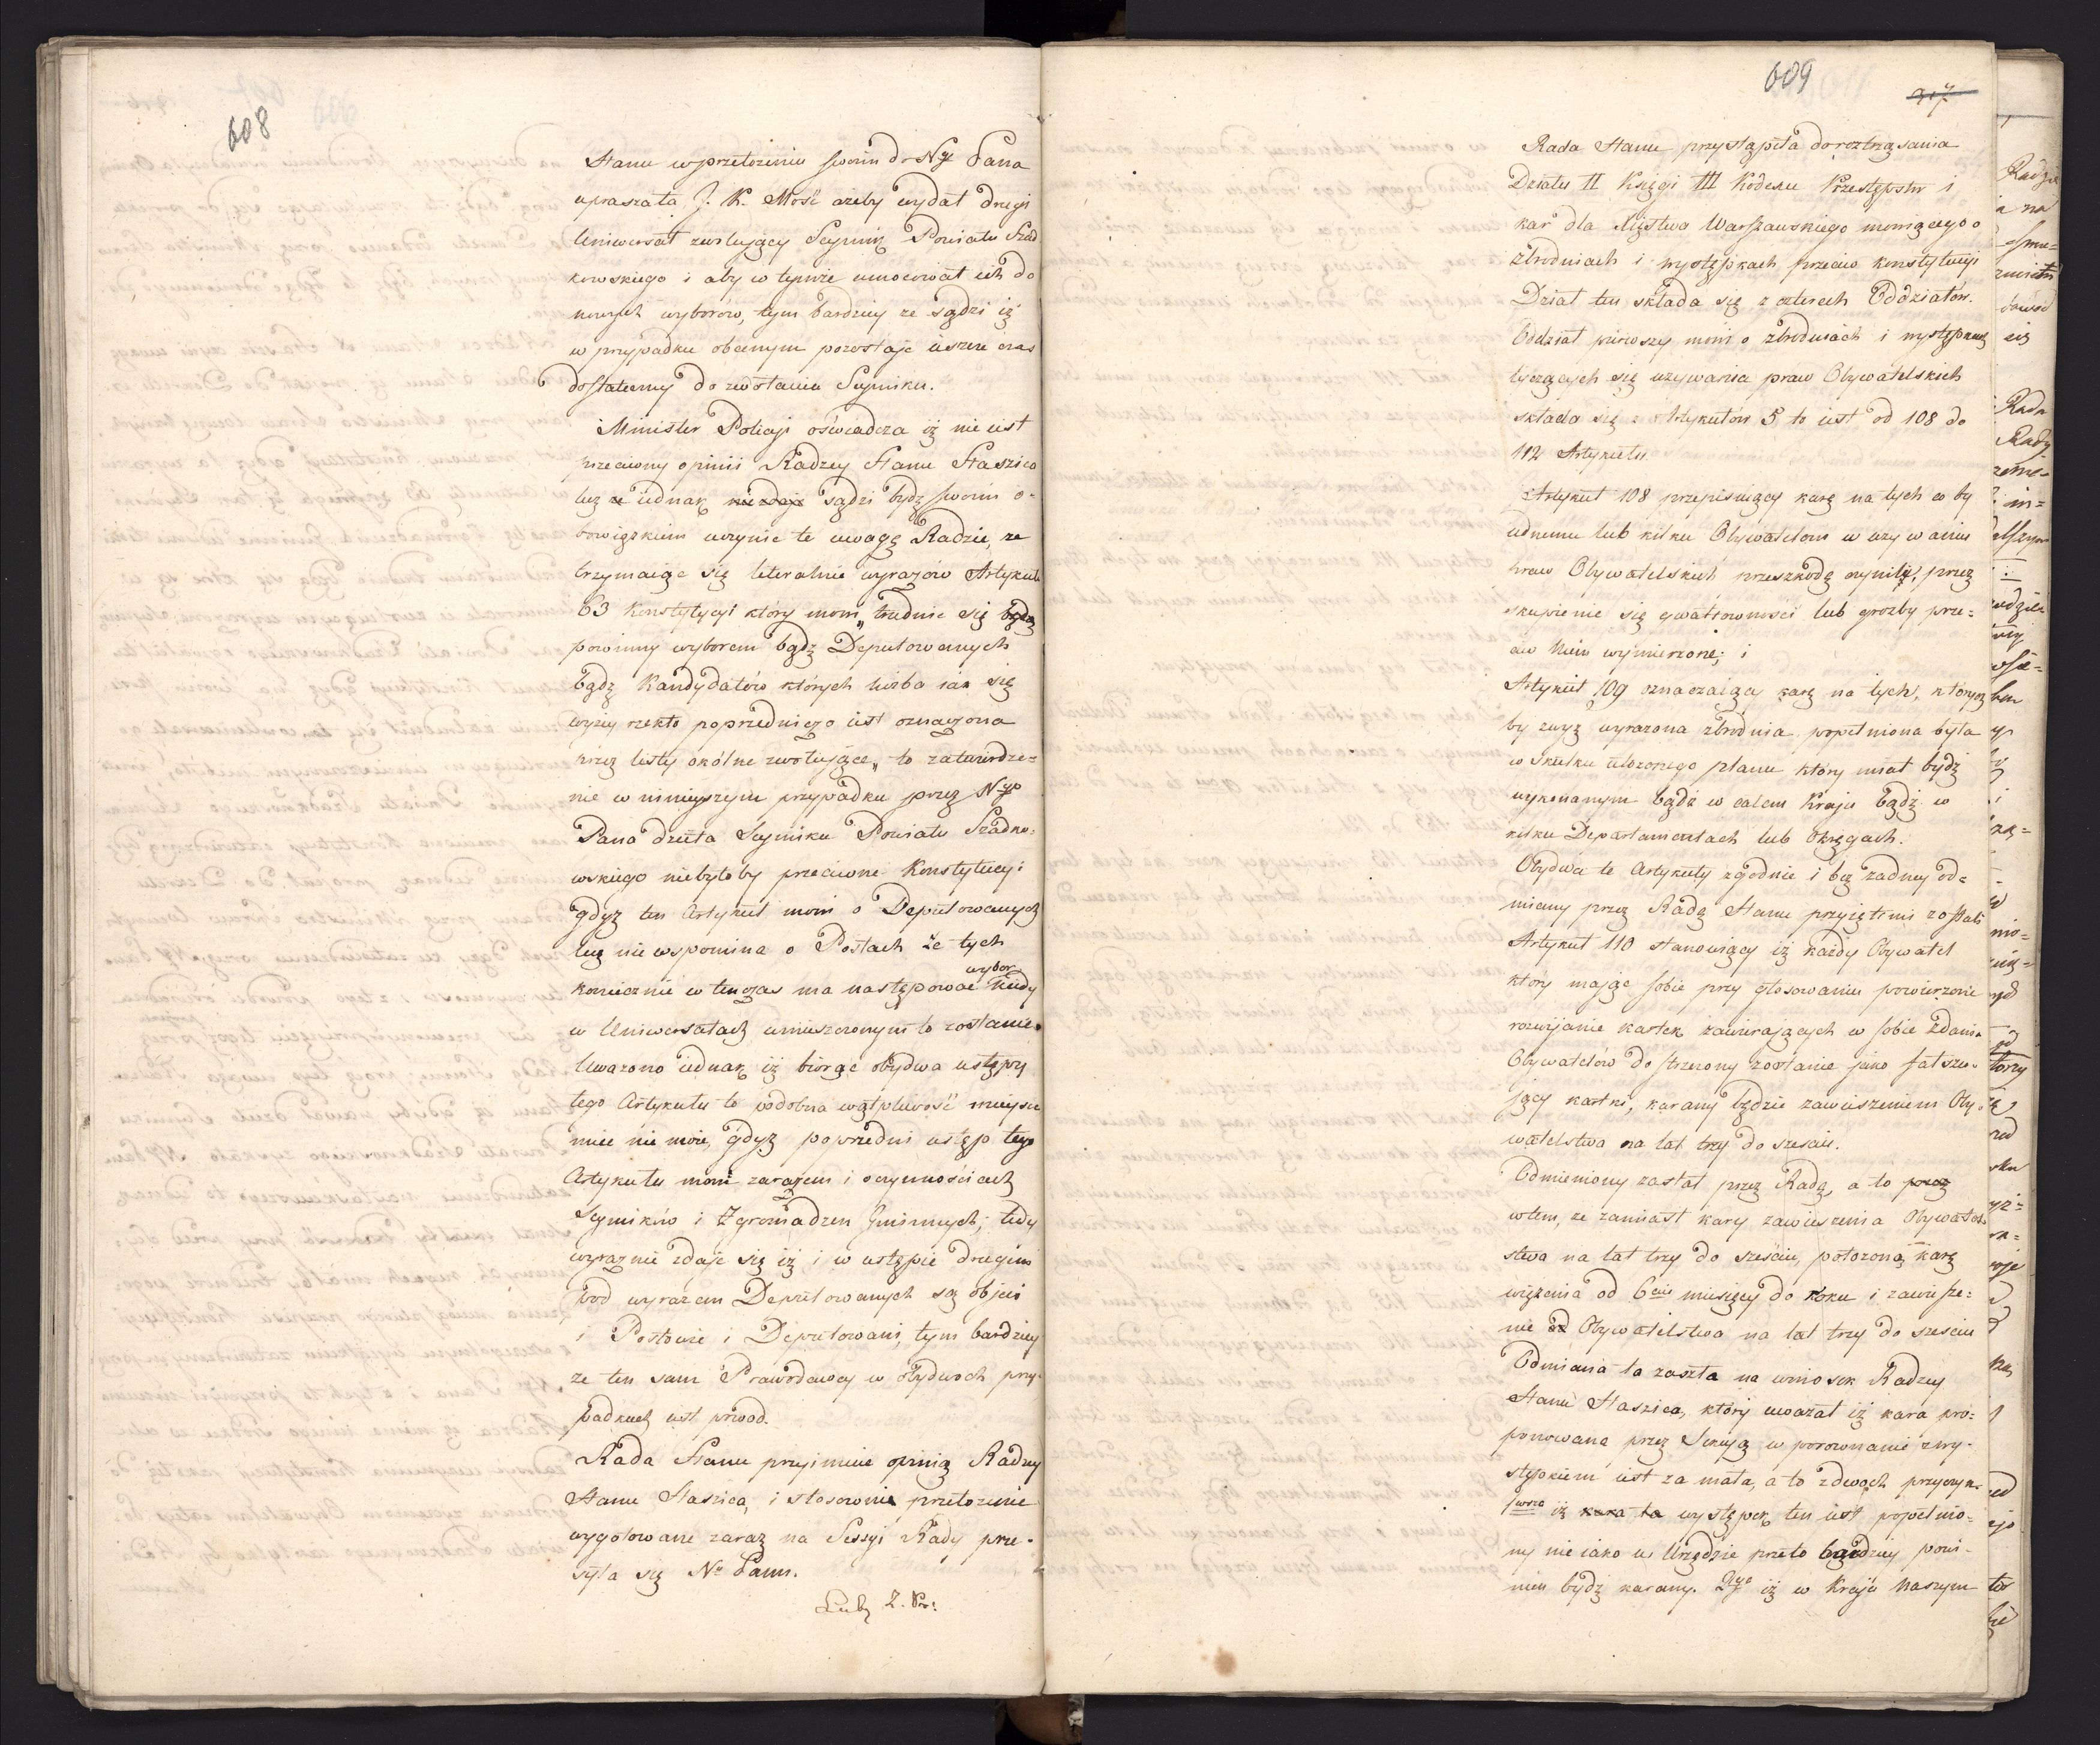 608
Stanu w przełożeniu swoim do Ngo Pana
upraszała J. K. Mość ażeby wydał drugi
Uniwersał zwołujący Seymik Powiatu Szad
kowskiego i aby w tymże umocował ich do
nowych wyborów, tym bardziey że sądzi iż
w przypadku obecnym pozostaje ieszcze czas
dostateczny do zwołania Seymiku.
Minister Policyi oświadcza iż nie iest
przeciwny opinii Radzcy Stanu Staszica
lecz że iednak nie zdaje sądzi bydź swoim o-
bowiązkiem uczynić te uwagę Radzie, że
trzymaiąc się literalnie wyrazów Artykułu
63 Konstytucyi który mowi „trudnić się będą
powinny wyborem bądź Deputowanych
bądź Kandydatów których liczba iak się
wyżey rzekło poprzedniczo iest oznaczona
przez listy okólne zwołujące„ to zatwierdze=
nie w ninieyszym przypadku przez Nygo
Pana dzieła Seymiku Powiatu Szadko=
wskiego niebyłoby przeciwne Konstytucyi
gdyż ten Artykuł mowi o Deputowanych
lecz nie wspomina o Posłach że tych
wybor
koniecznie w tenczas ma następować kiedy
w Uniwersałach umieszczonym to zostanie.
Uważono iednak iż biorąc obydwa ustępy
tego Artykułu to podobna wątpliwość mieysca
mieć nie może, gdyż poprzedni ustęp tego
Artykułu mowi zarazem i o czynnościach
Seymików i Zgromadzen Gminnych; tedy
wyraznie zdaje się iż i w ustępie drugim
pod wyrazem Deputowanych są objęci
i Posłowie i Deputowani, tym bardziey
że ten sam Prawodawcy w obydwoch przy-
padkach iest powod.
Rada Stanu przyimuie opinią Radzcy
Stanu Staszica, i stosownie przełożenie
wygotowane zaraz na Sessyi Rady prze-
syła się No Panu.
609
317
Rada Stanu przystąpiła do roztrząsania
Działu II Księgi III Kodexu Przestępstw i
kar dla Xięstwa Warszawskiego mowiącego o
zbrodniach i występkach przeciw Konstytucyi
Dział ten składa się z czterech Oddziałów.
Oddział pierwszy mowi o zbrodniach i występkach
tyczących się używania praw Obywatelskich
składa się z Artykułów 5 to iest od 108 do
112 Artykułu.
Artykuł 108 przepisuiący karę na tych co by
iednemu lub kilku Obywatelom w używaniu
praw Obywatelskich przeszkodę czynili, przez
skupienie się gwałtowności lub grozby prze=
ciw Nim wymierzone; i
Artykuł 109 oznaczaiący karę na tych, którzy
by zwyż wyrażona zbrodnia popełniona była
w skutku ułożonego planu który miał bydź
wykonanym bądź w całem Kraju bądź w
kilku Departamentach lub Okręgach.
Obydwa te Artykuły zgodnie i bez żadney od=
miany przez Radę Stanu przyiętemi zostali
Artykuł 110 stanowiący iż każdy Obywatel
który mając sobie przy głosowaniu powierzone
rozwijanie kartek zawierających w sobie zdania
Obywatelów dostrzeżony zostanie jako fałszu=
jący kartki, karany będzie zawieszeniem Oby=
watelstwa na lat trzy do sześciu.
Odmieniony został przez Radę, a to przez
w tem, że zamiast kary zawieszenia Obywatel=
stwa na lat trzy do sześciu, położoną karę
więzienia od 6ciu miesięcy do roku i zawiesze=
nie od Obywatelstwa na lat trzy do sześciu
Odmiana ta zaszła na wniosek Radzcy
Stanu Staszica, który uważał iż kara pro=
ponowana przez Sekcyą w porownanie z wy-
stępkiem iest za mała, a to z dwóch przyczyn.
1wsze iż kara ta występek ten iest popełnio=
ny nie iako w Urzędzie przeto bardziey powi-
nien bydź karany. 2gie iż w Kraju Naszym